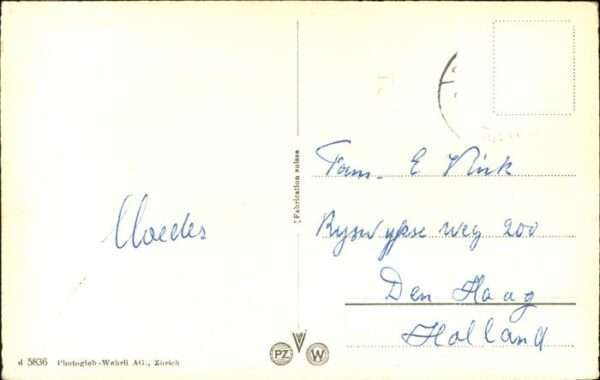 Moeder
Fam. E Vink
Ryswykse weg 200
Den Haag
Holland
Fabrication suisse
d 5836 Photoglob-Wehrli AG., Zürich
PZ W